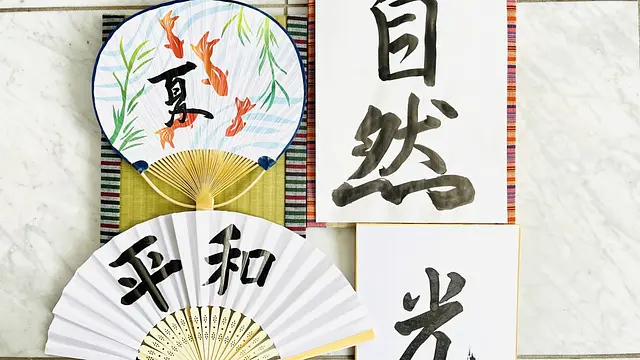 夏
平和
自然
光